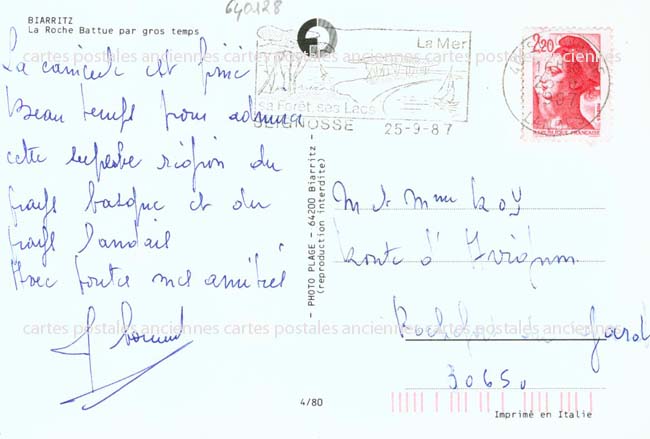 640128
BIARRITZ
La Roche Battue par gros temps
La canicule est finie
Beau temps pour admirer
cette superbe région du
pays basque et du
pays Landais
Avec toutes mes amitiés
La Mer
sa Forêt, ses Lacs
SEIGNOSSE 25-9-87
2,20
REPUBLIQUE FRANÇAISE
- PHOTO PLAGE - 64200 Biarritz -
(reproduction interdite)
M et Mme Roy
Route d'Avignon
Rochefort du Gard
30650
cartes postales anciennes cartes postales anciennes cartes postales anciennes
cartes postales anciennes cartes postales anciennes cartes postales anciennes
4/80
Imprimé en Italie